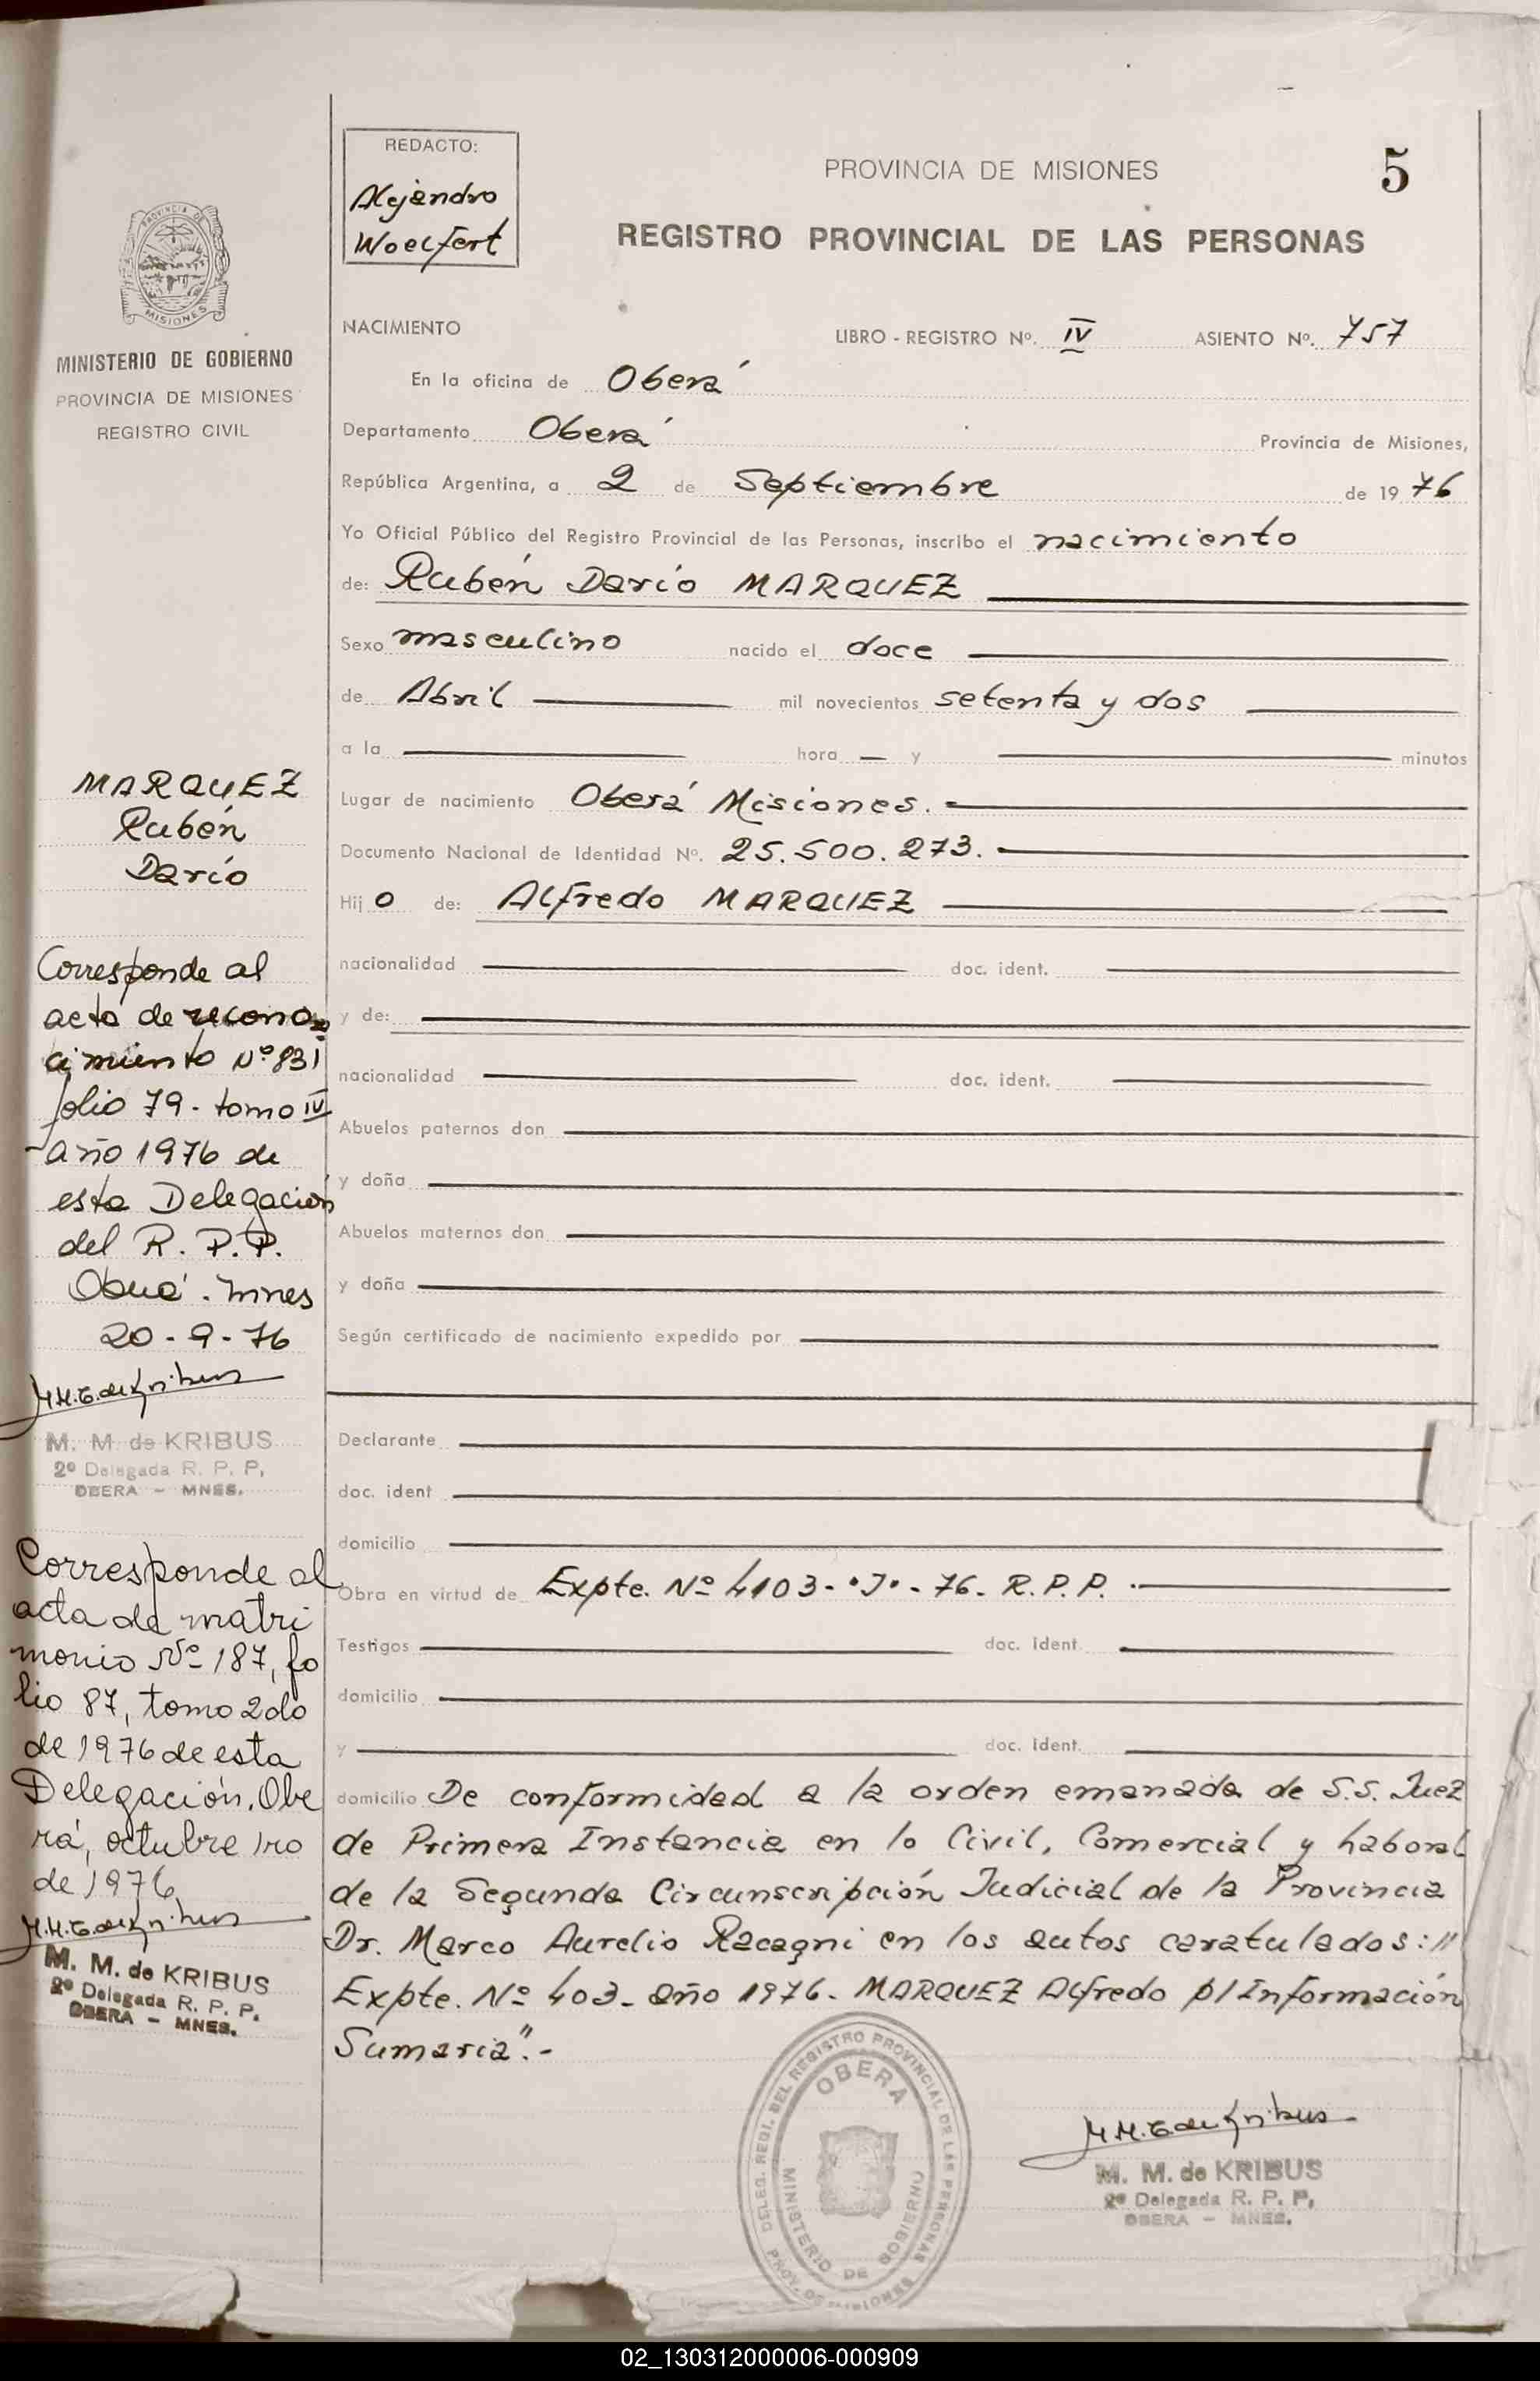 REDACTO:
Alejandro
Woelfert
PROVINCIA DE MISIONES
5
REGISTRO PROVINCIAL DE LAS PERSONAS
PROVINCIA DE
MISIONES
MINISTERIO DE GOBIERNO
PROVINCIA DE MISIONES
REGISTRO CIVIL
NACIMIENTO LIBRO - REGISTRO Nº. IV ASIENTO Nº. 757
En la oficina de Oberá
Departamento Oberá Provincia de Misiones,
República Argentina, a 2 de Septiembre de 19 76
Yo Oficial Público del Registro Provincial de las Personas, inscribo el nacimiento
de: Rubén Darío MARQUEZ
Sexo masculino nacido el doce
de Abril mil novecientos setenta y dos
a la hora y minutos
Lugar de nacimiento Oberá Misiones.
Documento Nacional de Identidad Nº. 25.500.273.
Hij o de: Alfredo MARQUEZ
nacionalidad doc. ident.
y de:
nacionalidad doc. ident.
Abuelos paternos don
y doña
Abuelos maternos don
y doña
Según certificado de nacimiento expedido por
Declarante
doc. ident
domicilio
Obra en virtud de Expte. Nº 4103-"J"-76- R.P.P.
Testigos doc. ident.
domicilio
y doc. ident.
domicilio De conformidad a la orden emanada de S.S. Juez
de Primera Instancia en lo Civil, Comercial y Laboral
de la Segunda Circunscripción Judicial de la Provincia
Dr. Marco Aurelio Racagni en los autos caratulados: "
Expte. Nº 403- año 1976- MARQUEZ Alfredo p/ Información
Sumaria".-
MARQUEZ
Rubén
Darío
Corresponde al
acta de recono
cimiento Nº 831
folio 79- tomo IV
año 1976 de
esta Delegación
del R. P.P.
Oberá. Mnes
20-9-76
M.M.G. de Kribus
M. M. de KRIBUS
2º Delegada R. P. P.
OBERA - MNES.
Corresponde al
acta de matri
monio Nº 187, fo
lio 87, tomo 2do
de 1976 de esta
Delegación. Obe
rá, octubre 1ro
de 1976
M.M.G. de Kribus
M. M. de KRIBUS
2º Delegada R. P. P.
OBERA - MNES.
DELEG. REGI. DEL REGISTRO PROVINCIAL DE LAS PERSONAS
OBERA
MINISTERIO DE GOBIERNO
PROV. DE MISIONES
M.M.G. de Kribus
M. M. de KRIBUS
2º Delegada R. P. P.
OBERA - MNES.
02_130312000006-000909